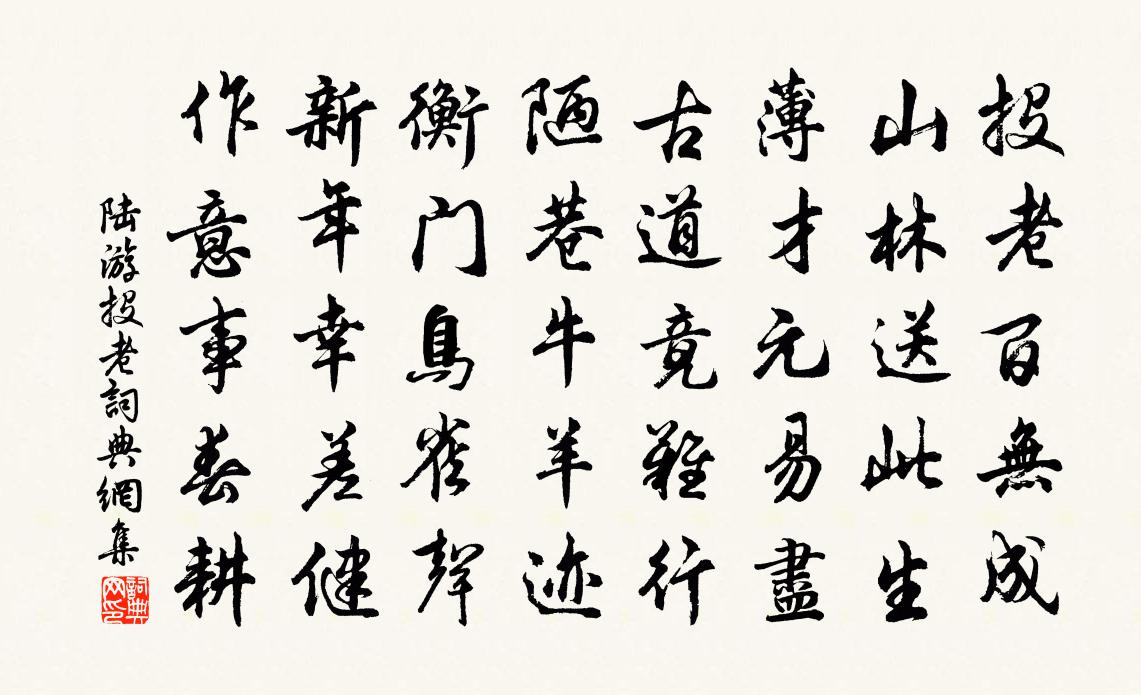 投老百無成
山林送此生
薄才元易盡
古道竟難行
陋巷牛羊迹
衡門鳥雀聲
新年幸差健
作意事春耕
陆游投老詞典網集
詞典网印